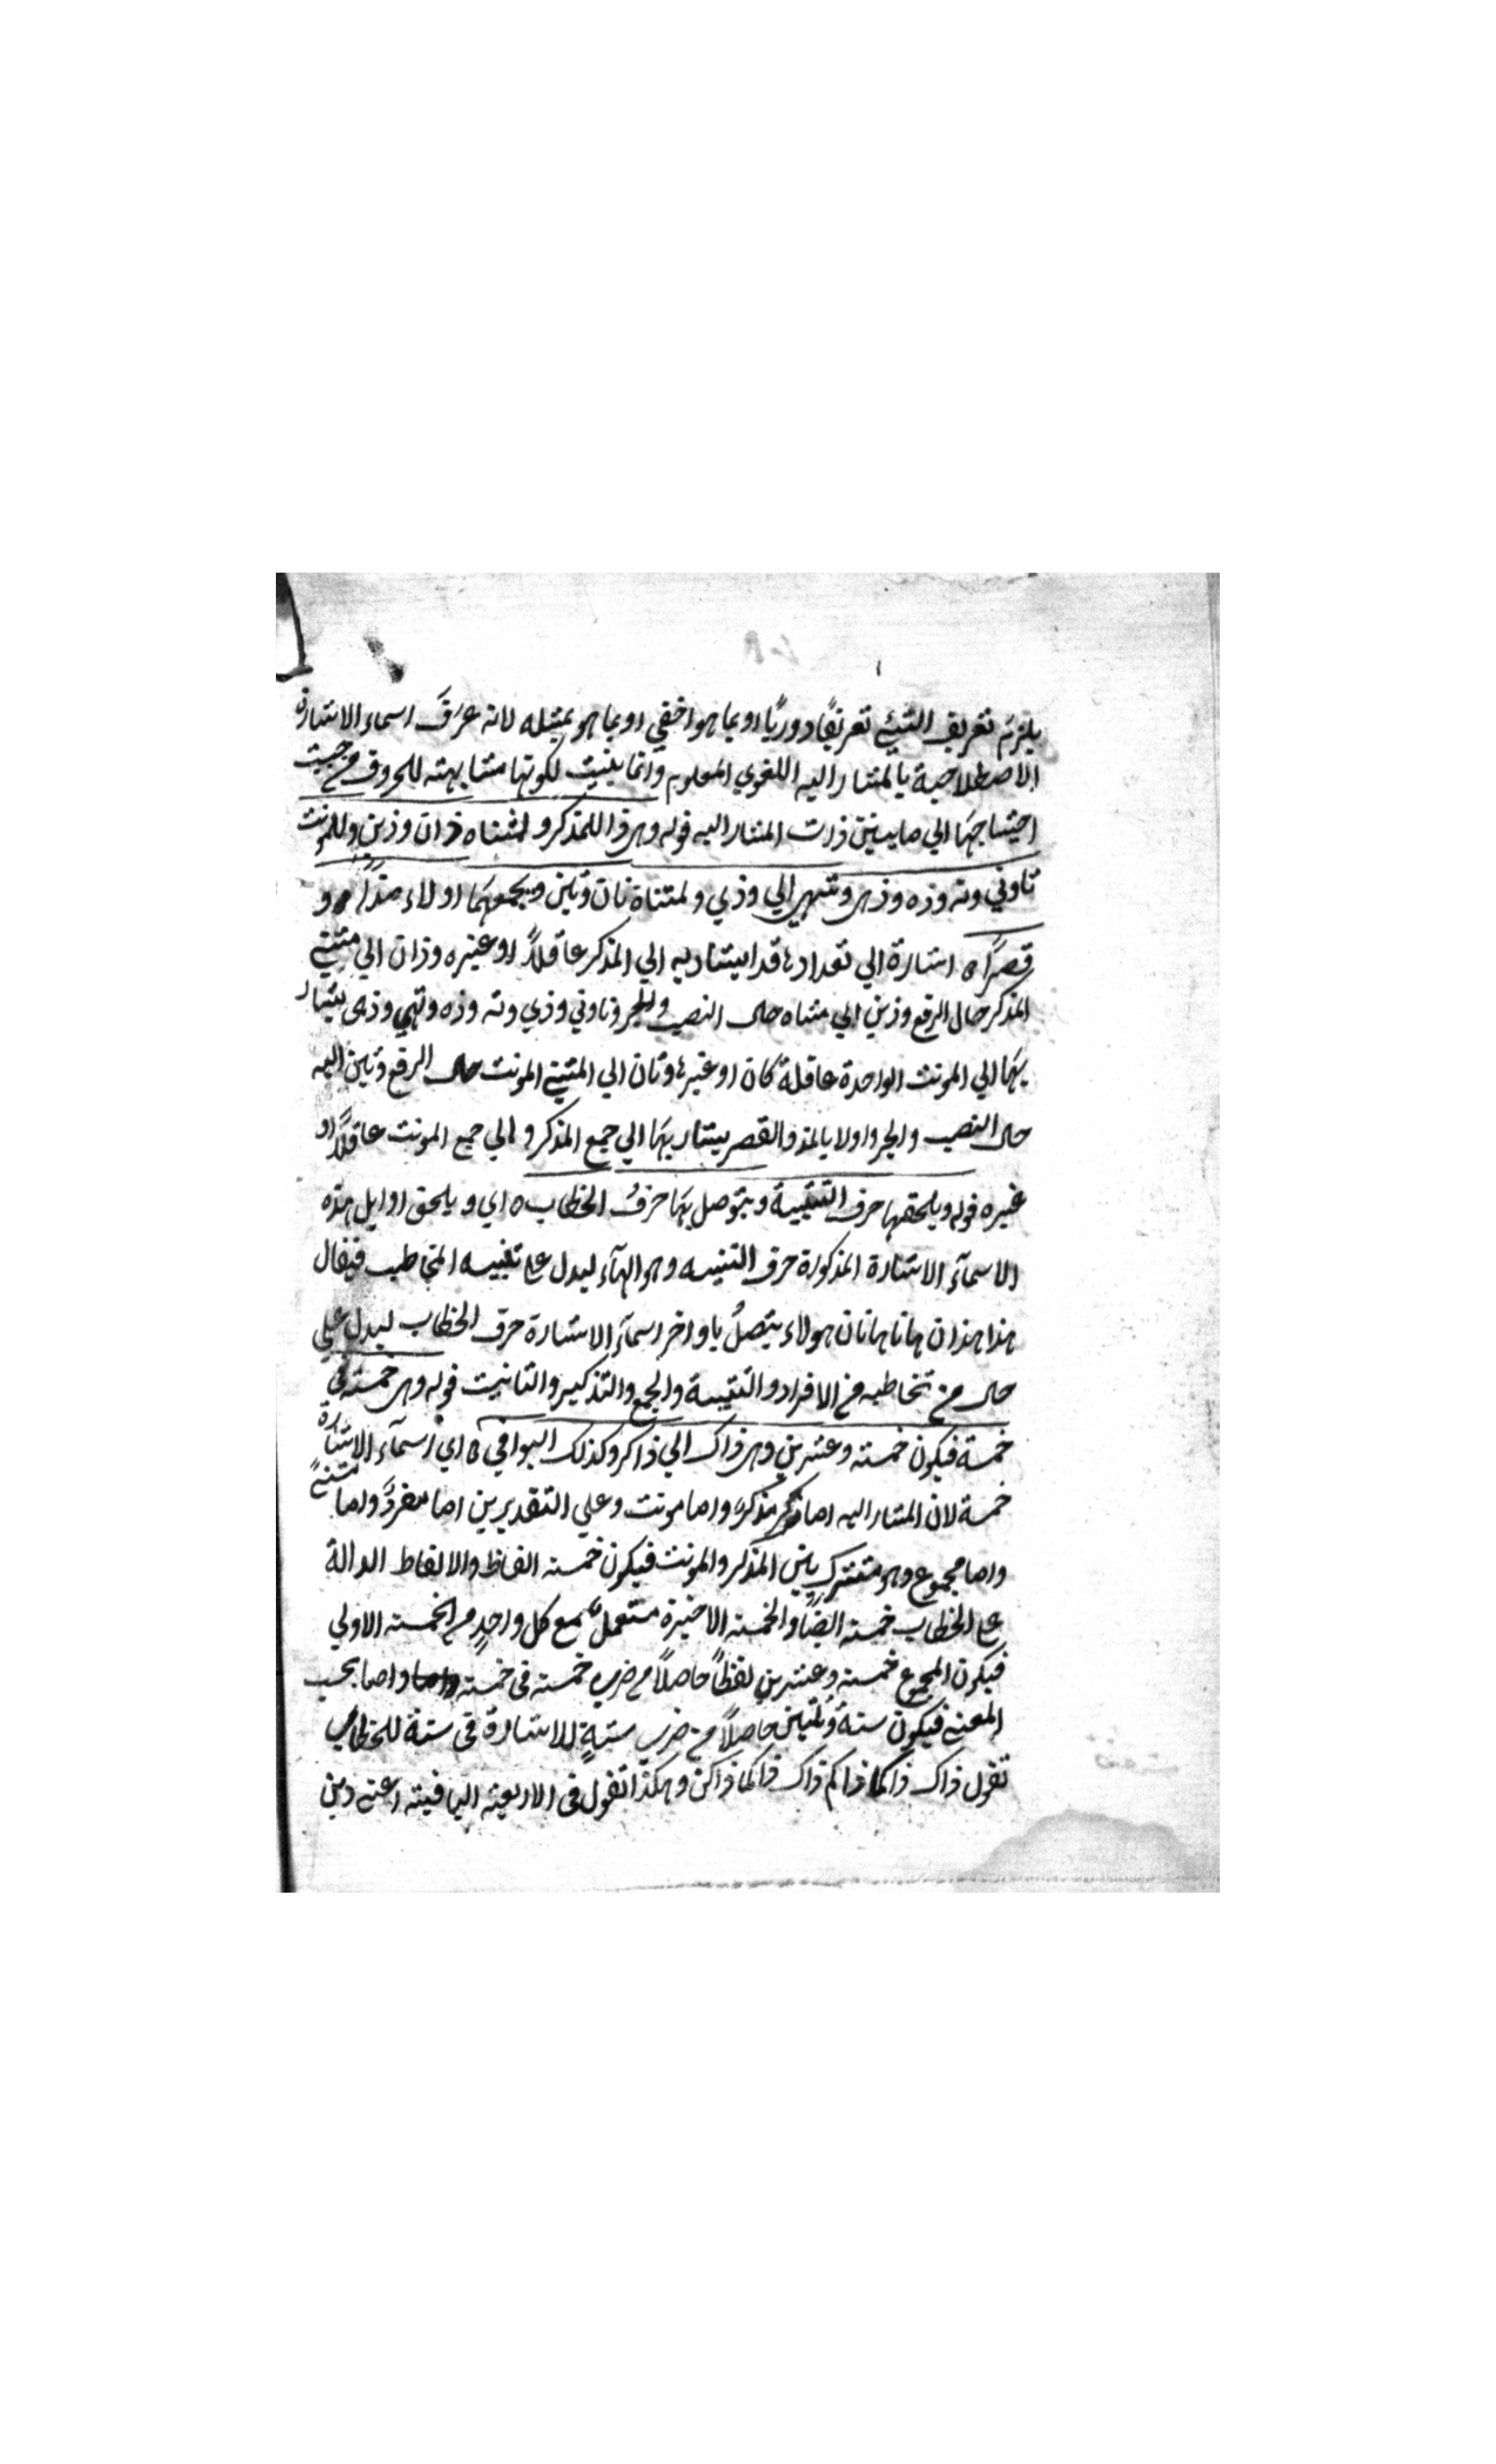 يلزم تعريف الشيئ تعريفًا دوريًا او بما هو اخفي او بما هو بمثيله لانه عرَفَ اسماء الاشارة
الاصطلاحية بالمشار اليه اللغوي المعلوم وانما بنيت لكونها مشابهته للحروف من حيث
احتياجهَا الي ما يبين ذات المشار اليه قوله وهي ذا للمذكر و لمثناه ذان وذين وللمونث
تا وتي وته وذه وذهي وتهي الي وذي ولمثناة تان وتين ويجمعهمَا اولاء مدًا و
قصرًا ه اشارة الي تعدادها قد ايشار به الي المذكر عاقلاً او غيره وذان الي مثني
المذكر حال الرفع وذين الي مثناه حال النصب والجر وتا وتي وذي وته وذه وتهي وذهي يشار
بهَا الي المونث الواحدة عاقلة كان او غيرها وتان الي المثني المونث حال الرفع وتين اليه
حال النصب والجر واولا بالمد والقصر يشار بهَا الي جميع المذكر و الي جميع المونث عاقلاً او
غيره قوله ويلحقهها حرف التنبية ويتوصل بهَا حرفُ الخطاب ه اي ويلحق اوايل هذه
الاسمآء الاشارة المذكورة حرف التنبيه وهو الهآء ليدل علي تنبيه المخاطب فيقال
هذا هذان هاتا هاتان هولاء يتصلُ باواخر اسمآء الاشارة حرف الخطاب ليدل علي
حال من تخاطبه من الافراد والتثنية والجمع والتذكير والتانيث قوله وهي خمسته في
خمسة فيكون خمسته وعشرين وهي ذاك الي ذاكن وكذلك البواقي ه اي اسمآء الاشارة
خمسة لان المشار اليه اما مذكرٌ واما مونث وعلي التقديرين اما مفردٌ واما مثنيً
واما مجموع وهو مشترك بين المذكر والمونث فيكون خمسته الفاظ والالفاط الدالة
علي الخطاب خمسته ايضًا والخمسته الاخيرة مستعملٌ مع كل واحدٍ من الخمسته الاولي
فيكون المجموع خمسته وعشرين لفظاً حاصلاً من ضرب خمسته في خمسته واما بحسب
المعني فيكون ستةً وثلثين حاصلاً من ضرب ستةٍ للاشارة في ستة للخطاب
تقول ذاك ذاكما ذاكم ذاك ذاكما ذاكن وهكذا تقول في الاربعيته الباقيته اعني ذين